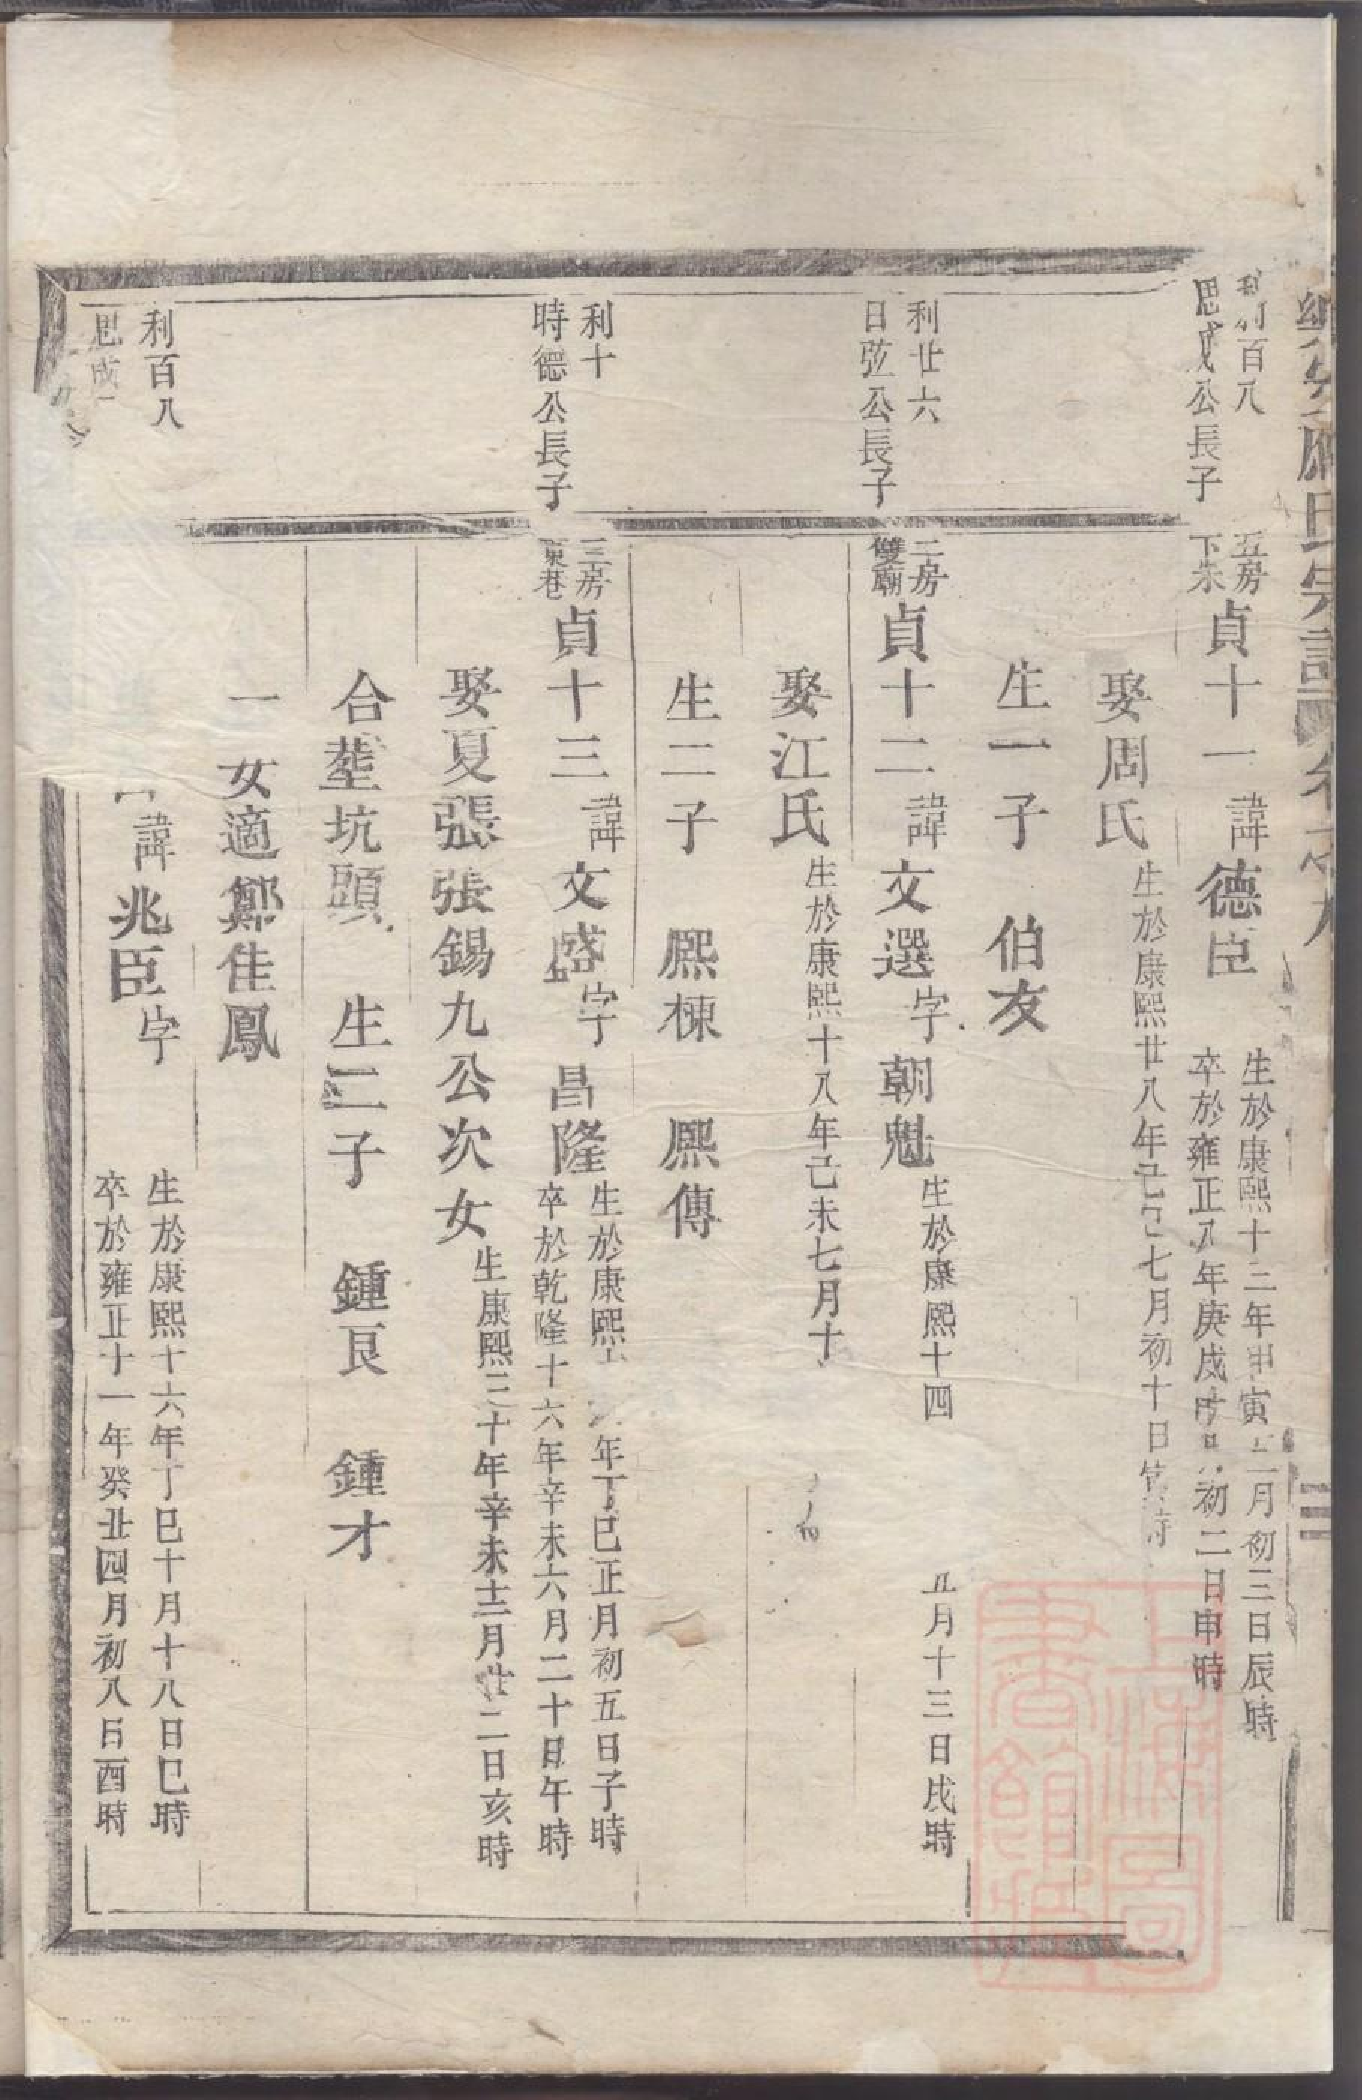 氏宗譜
利百八
思成公長子
五房
下朱
貞十一 諱德臣
生於康熙十三年甲寅十二月初三日辰時
卒於雍正八年庚戌 初二日申時
娶周氏 生於康熙廿八年己巳七月初十日 時
生一子 伯友
利廿六
日弦公長子
二房
雙廟
貞十二 諱文選 字朝魁 生於康熙十四 五月十三日戌時
娶江氏 生於康熙十八年己未七月十
生二子 熙棟 熙傳
利十
時德公長子
三房
東巷
貞十三 諱文盛 字昌隆
生於康熙 年丁巳正月初五日子時
卒於乾隆十六年辛未六月二十日午時
娶夏張張錫九公次女 生康熙三十年辛未十二月廿二日亥時
合塟坑頭 生二子 鍾良 鍾才
一女適鄭佳鳳
利百八
思成
諱兆臣 字
生於康熙十六年丁巳十月十八日巳時
卒於雍正十一年癸丑四月初八日酉時
上海圖
書館藏